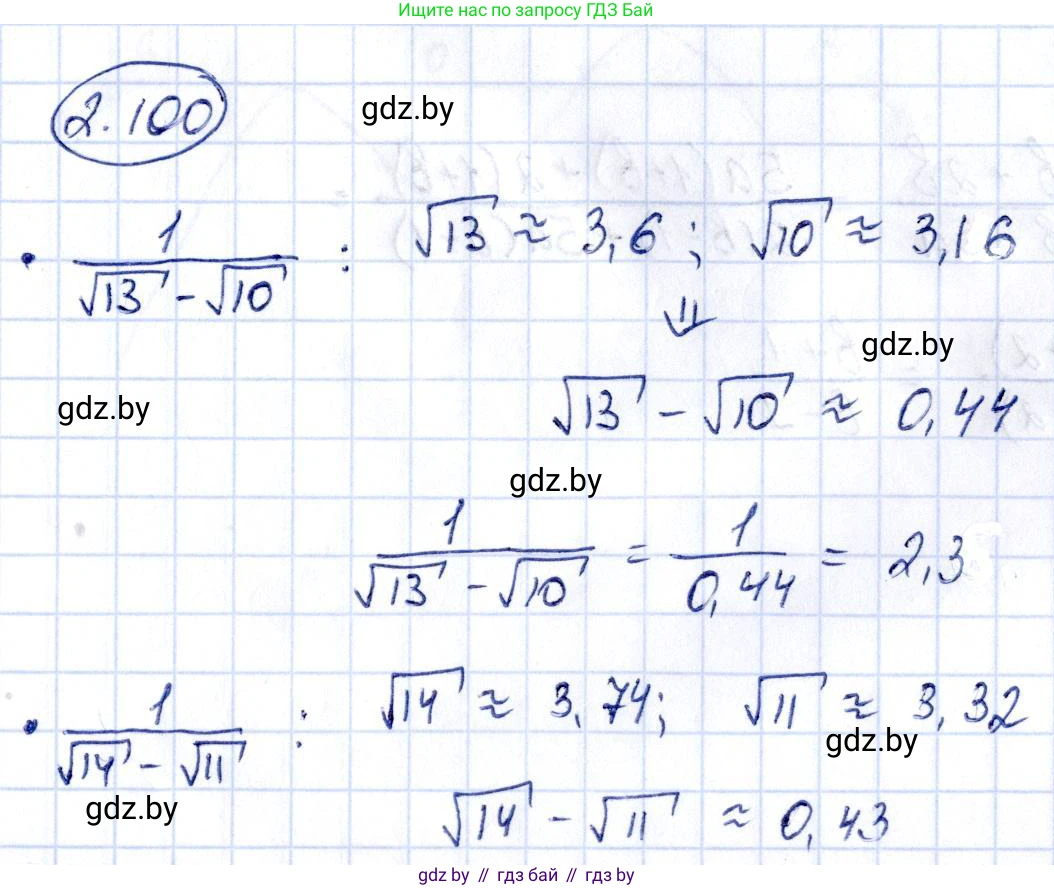 Ищите нас по запросу ГДЗ Бай
2.100
gdz.by
• 1/(√13 - √10) : √13 ≈ 3,6; √10 ≈ 3,16
⇓
gdz.by
√13 - √10 ≈ 0,44
gdz.by
gdz.by
1/(√13 - √10) = 1/0,44 = 2,3
• 1/(√14 - √11) : √14 ≈ 3,74; √11 ≈ 3,32
gdz.by
gdz.by
√14 - √11 ≈ 0,43
gdz.by // гдз бай // gdz by